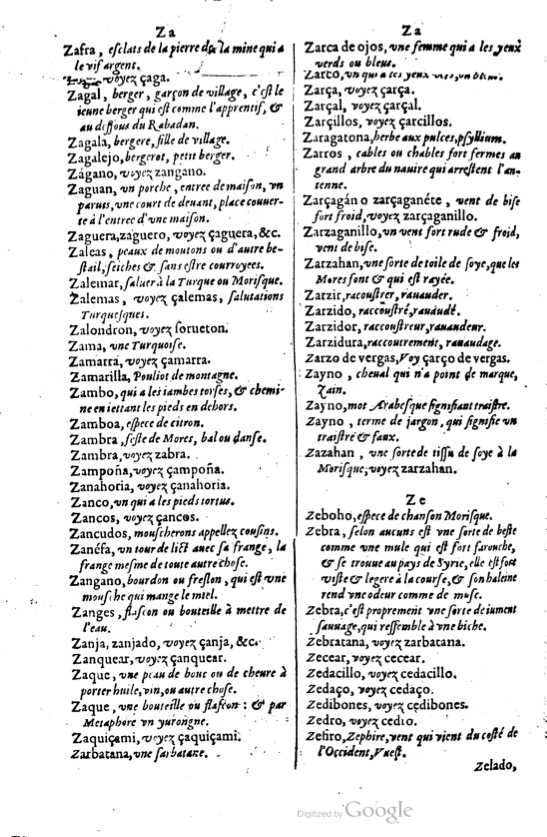 Za
Zafra, esclats de la pierre de la mine qui a
le vif argent.
voyez çaga.
Zagal, berger, garçon de village, c'est le
ieune berger qui est comme l'apprentif, &
au dessous du Rabadan.
Zagala, bergere, fille de village.
Zagalejo, bergerot, petit berger.
Zágano, voyez zangano.
Zaguan, un porche, entree de maison, vn
paruis, vne court de deuant, place couuer-
te à l'entree d'vne maison.
Zaguera, zaguero, voyez çaguera, &c.
Zaleas, peaux de moutons ou d'autre be-
stail, seiches & sans estre courroyees.
Zalemar, saluer à la Turque ou Morisque.
Zalemas, voyez çalemas, salutations
Turquesques.
Zalondron, voyez sorueton.
Zama, vne Turquoise.
Zamarra, voyez çamarra.
Zamarilla, Pouliot de montagne.
Zambo, qui a les iambes torses, & chemi-
ne en iettant les pieds en dehors.
Zamboa, espece de citron.
Zambra, feste de Mores, bal ou danse.
Zambra, voyez zabra.
Zampoña, voyez çampoña.
Zanahoria, voyez çanahoria.
Zanco, vn qui a les pieds tortus.
Zancos, voyez çancos.
Zancudos, moucherons appellez cousins.
Zanéfa, vn tour de lict auec sa frange, la
frange mesme de toute autre chose.
Zangano, bourdon ou freslon, qui est vne
mousche qui mange le miel.
Zanges, flascon ou bouteille à mettre de
l'eau.
Zanja, zanjado, voyez çanja, &c.
Zanquear, voyez çanquear.
Zaque, vne peau de bouc ou de cheure à
porter huile, vin, ou autre chose.
Zaque, vne bouteille ou flascon: & par
Metaphore vn yurongne.
Zaquiçami, voyez çaquiçami.
Zarbatana, vne sarbatane.
Za
Zarca de ojos, vne femme qui a les yeux
verds ou bleus.
Zarco, vn qui a les yeux vers, ou bleus.
Zarça, voyez çarça.
Zarçal, voyez çarçal.
Zarçillos, voyez çarcillos.
Zaragatona, herbe aux pulces, psyllium.
Zarros, cables ou chables fort fermes au
grand arbre du nauire qui arrestent l'an-
tenne.
Zarçagán o zarçaganéte, vent de bise
fort froid, voyez zarçaganillo.
Zarzaganillo, vn vent fort rude & froid,
vent de bise.
Zarzahan, vne sorte de toile de soye, que les
Mores font & qui est rayée.
Zarzir, racoustrer, rauauder.
Zarzido, racoustré, rauaudé.
Zarzidor, raccoustreur, rauaudeur.
Zarzidura, raccoutrement, rauaudage.
Zarzo de vergas, Voy çarço de vergas.
Zayno, cheual qui n'a point de marque,
Zain.
Zayno, mot Arabesque signifiant traistre.
Zayno, terme de jargon, qui signifie vn
traistre & faux.
Zazahan, vne sorte de tissu de soye à la
Morisque, voyez zarzahan.
Ze
Zeboho, espece de chanson Morisque.
Zebra, selon aucuns est vne sorte de beste
comme vne mule qui est fort farouche,
& se trouue au pays de Syrie, elle est fort
viste & legere à la course, & son haleine
rend vne odeur comme de musc.
Zebra, c'est proprement vne sorte de iument
sauuage, qui ressemble à vne biche.
Zebratana, voyez zarbatana.
Zecear, voyez cecear.
Zedacillo, voyez cedacillo.
Zedaço, voyez cedaço.
Zedibones, voyez çedibones.
Zedro, voyez cedro.
Zefiro, Zephire, vent qui vient du costé de
l'Occident, Vuest.
Zelado,
Digitized by Google